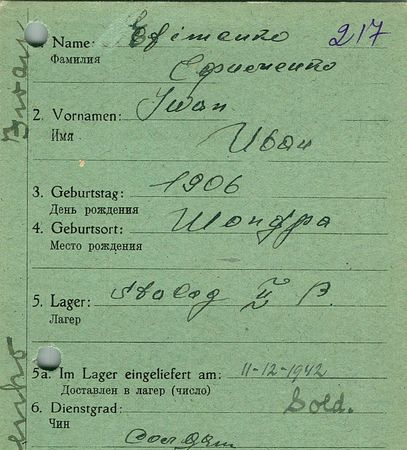 1. Name: Efimenko 217
Фамилия Ефименко
2. Vornamen: Iwan
Имя Иван
3. Geburtstag: 1906
День рождения
4. Geburtsort:
Место рождения
5. Lager: Stalag II B.
Лагер
5a. Im Lager eingeliefert am: 11-12-1942
Доставлен в лагер (число)
6. Dienstgrad: Sold.
Чин солдат